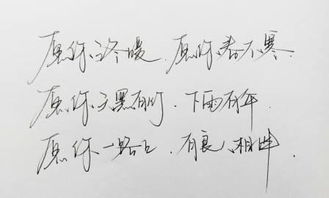 愿你冬暖.愿你春不寒.
愿你天黑有灯.下雨有伞.
愿你一路上.有良人相伴.